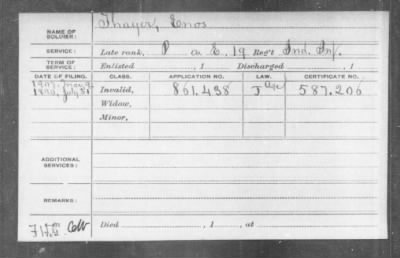 NAME OF SOLDIER: Thayer, Enos
SERVICE: Late rank, P co. E, 19 Reg't Ind. Inf.
TERM OF SERVICE: Enlisted , 1 Discharged , 1
DATE OF FILING. CLASS. APPLICATION NO. LAW. CERTIFICATE NO.
1907,
1890, July 31 Invalid, 861.438 587.206
Widow,
Minor,
ADDITIONAL SERVICES:
REMARKS:
Died , 1 , at